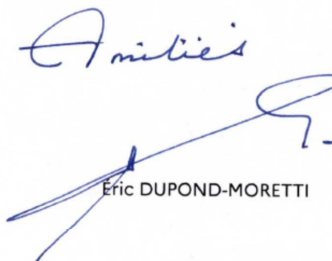 Amitiés
Éric DUPOND-MORETTI